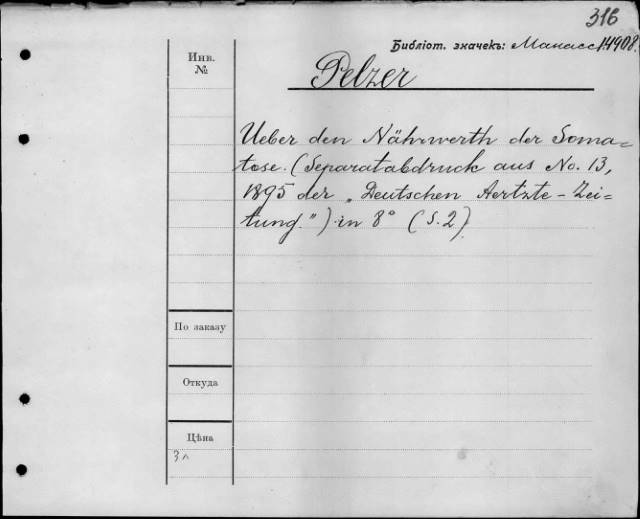 316
Библіот. значекъ: Манасс. 14908.
Инв.
№
Pelzer
Ueber den Nährwerth der Soma=
tose. (Separatabdruck aus No. 13,
1895 der „Deutschen Aertzte-Zei=
tung.") in 8° (S. 2).
По заказу
Откуда
Цѣна